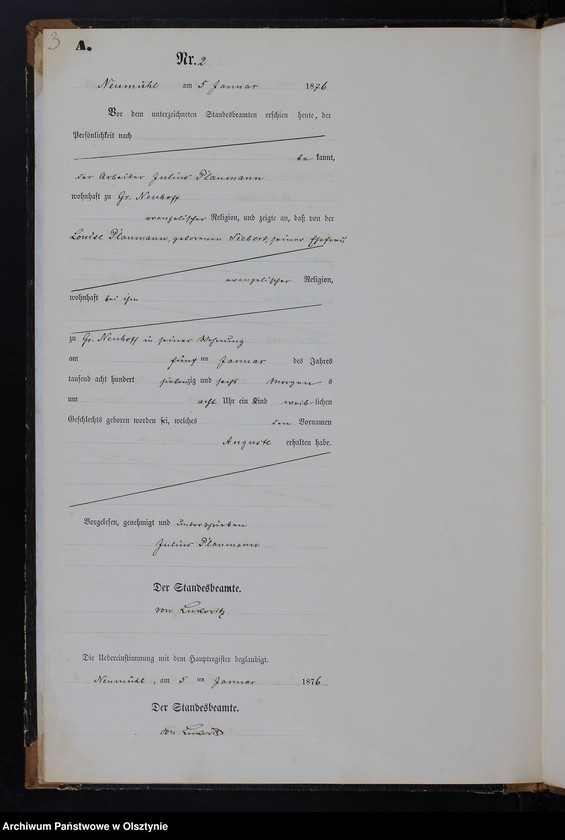 3
A.
Nr. 2
Neumühl am 5 Januar 1876
Vor dem unterzeichneten Standesbeamten erschien heute, der
Persönlichkeit nach
bekannt,
der Arbeiter Julius Plaumann
wohnhaft zu Gr. Neuhoff
evangelischer Religion, und zeigte an, daß von der
Louise Plaumann, geborenen Siebert, seiner Ehefrau
evangelischer Religion,
wohnhaft bei ihm
zu Gr. Neuhoff in seiner Wohnung
am fünf ten Januar des Jahres
tausend acht hundert siebenzig und sechs Morgens
um acht Uhr ein Kind weiblichen
Geschlechts geboren worden sei, welches den Vornamen
Auguste erhalten habe.
Vorgelesen, genehmigt und unterschrieben
Julius Plaumann
Der Standesbeamte.
von
Die Uebereinstimmung mit dem Hauptregister beglaubigt.
Neumühl, am 5 ten Januar 1876
Der Standesbeamte.
von
Archiwum Państwowe w Olsztynie